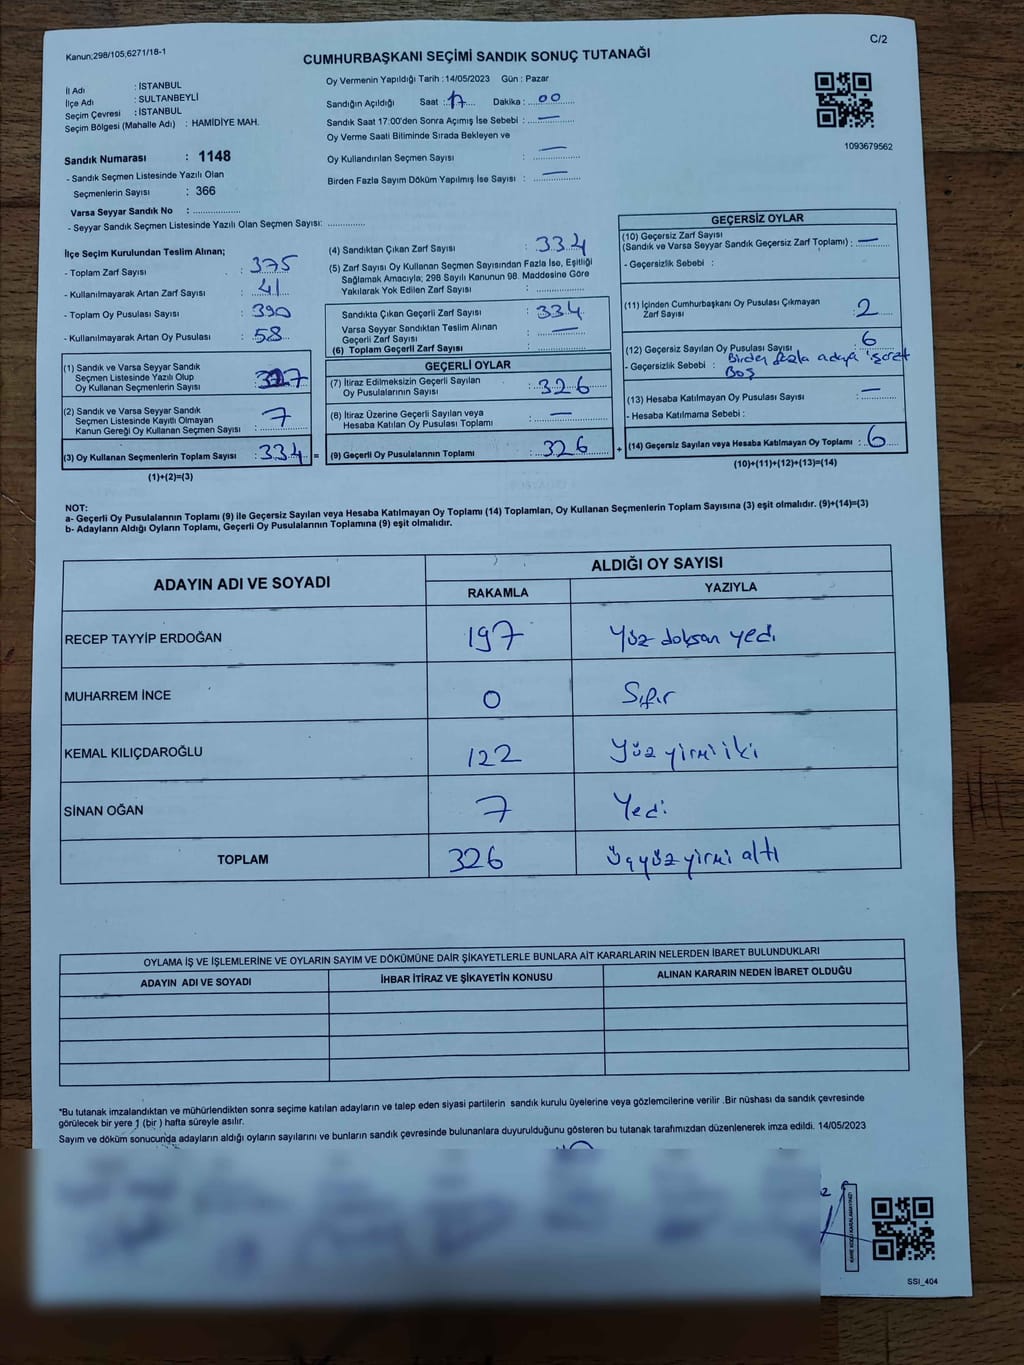 Kanun;298/105,6271/18-1
C/2
CUMHURBAŞKANI SEÇİMİ SANDIK SONUÇ TUTANAĞI
İl Adı : İSTANBUL
İlçe Adı : SULTANBEYLİ
Seçim Çevresi : İSTANBUL
Seçim Bölgesi (Mahalle Adı) : HAMİDİYE MAH.
Sandık Numarası : 1148
- Sandık Seçmen Listesinde Yazılı Olan
Seçmenlerin Sayısı : 366
Varsa Seyyar Sandık No : ....................
- Seyyar Sandık Seçmen Listesinde Yazılı Olan Seçmen Sayısı: ....................
Oy Vermenin Yapıldığı Tarih : 14/05/2023 Gün : Pazar
Sandığın Açıldığı Saat : 17 Dakika : 00
Sandık Saat 17:00'den Sonra Açımış İse Sebebi : —
Oy Verme Saati Bitiminde Sırada Bekleyen ve
Oy Kullandırılan Seçmen Sayısı : —
Birden Fazla Sayım Döküm Yapılmış İse Sayısı : —
1093679562
İlçe Seçim Kurulundan Teslim Alınan;
- Toplam Zarf Sayısı : 375
- Kullanılmayarak Artan Zarf Sayısı : 41
- Toplam Oy Pusulası Sayısı : 390
- Kullanılmayarak Artan Oy Pusulası : 58
(1) Sandık ve Varsa Seyyar Sandık
Seçmen Listesinde Yazılı Olup
Oy Kullanan Seçmenlerin Sayısı : 327
(2) Sandık ve Varsa Seyyar Sandık
Seçmen Listesinde Kayıtlı Olmayan
Kanun Gereği Oy Kullanan Seçmen Sayısı : 7
(3) Oy Kullanan Seçmenlerin Toplam Sayısı : 334 =
(1)+(2)=(3)
(4) Sandıktan Çıkan Zarf Sayısı : 334
(5) Zarf Sayısı Oy Kullanan Seçmen Sayısından Fazla İse, Eşitliği
Sağlamak Amacıyla; 298 Sayılı Kanunun 98. Maddesine Göre
Yakılarak Yok Edilen Zarf Sayısı : ....................
Sandıkta Çıkan Geçerli Zarf Sayısı : 334
Varsa Seyyar Sandıktan Teslim Alınan
Geçerli Zarf Sayısı : —
(6) Toplam Geçerli Zarf Sayısı : ....................
GEÇERLİ OYLAR
(7) İtiraz Edilmeksizin Geçerli Sayılan
Oy Pusulalarının Sayısı : 326
(8) İtiraz Üzerine Geçerli Sayılan veya
Hesaba Katılan Oy Pusulası Toplamı : —
(9) Geçerli Oy Pusulalarının Toplamı : 326 +
GEÇERSİZ OYLAR
(10) Geçersiz Zarf Sayısı
(Sandık ve Varsa Seyyar Sandık Geçersiz Zarf Toplamı) : —
- Geçersizlik Sebebi :
(11) İçinden Cumhurbaşkanı Oy Pusulası Çıkmayan
Zarf Sayısı : 2
(12) Geçersiz Sayılan Oy Pusulası Sayısı : 6
- Geçersizlik Sebebi : Birden fazla adaya işaret
Boş
(13) Hesaba Katılmayan Oy Pusulası Sayısı : —
- Hesaba Katılmama Sebebi :
(14) Geçersiz Sayılan veya Hesaba Katılmayan Oy Toplamı : 6
(10)+(11)+(12)+(13)=(14)
NOT:
a- Geçerli Oy Pusulalarının Toplamı (9) ile Geçersiz Sayılan veya Hesaba Katılmayan Oy Toplamı (14) Toplamları, Oy Kullanan Seçmenlerin Toplam Sayısına (3) eşit olmalıdır. (9)+(14)=(3)
b- Adayların Aldığı Oyların Toplamı, Geçerli Oy Pusulalarının Toplamına (9) eşit olmalıdır.
ADAYIN ADI VE SOYADI
ALDIĞI OY SAYISI
RAKAMLA YAZIYLA
RECEP TAYYİP ERDOĞAN 197 Yüz doksan yedi
MUHARREM İNCE 0 Sıfır
KEMAL KILIÇDAROĞLU 122 Yüz yirmi iki
SİNAN OĞAN 7 Yedi
TOPLAM 326 Üçyüz yirmi altı
OYLAMA İŞ VE İŞLEMLERİNE VE OYLARIN SAYIM VE DÖKÜMÜNE DAİR ŞİKAYETLERLE BUNLARA AİT KARARLARIN NELERDEN İBARET BULUNDUKLARI
ADAYIN ADI VE SOYADI İHBAR İTİRAZ VE ŞİKAYETİN KONUSU ALINAN KARARIN NEDEN İBARET OLDUĞU
*Bu tutanak imzalandıktan ve mühürlendikten sonra seçime katılan adayların ve talep eden siyasi partilerin sandık kurulu üyelerine veya gözlemcilerine verilir .Bir nüshası da sandık çevresinde
görülecek bir yere 1 (bir ) hafta süreyle asılır.
Sayım ve döküm sonucunda adayların aldığı oyların sayılarını ve bunların sandık çevresinde bulunanlara duyurulduğunu gösteren bu tutanak tarafımızdan düzenlenerek imza edildi. 14/05/2023
KARE KODU KARALAMAYINIZ!
SSI_404